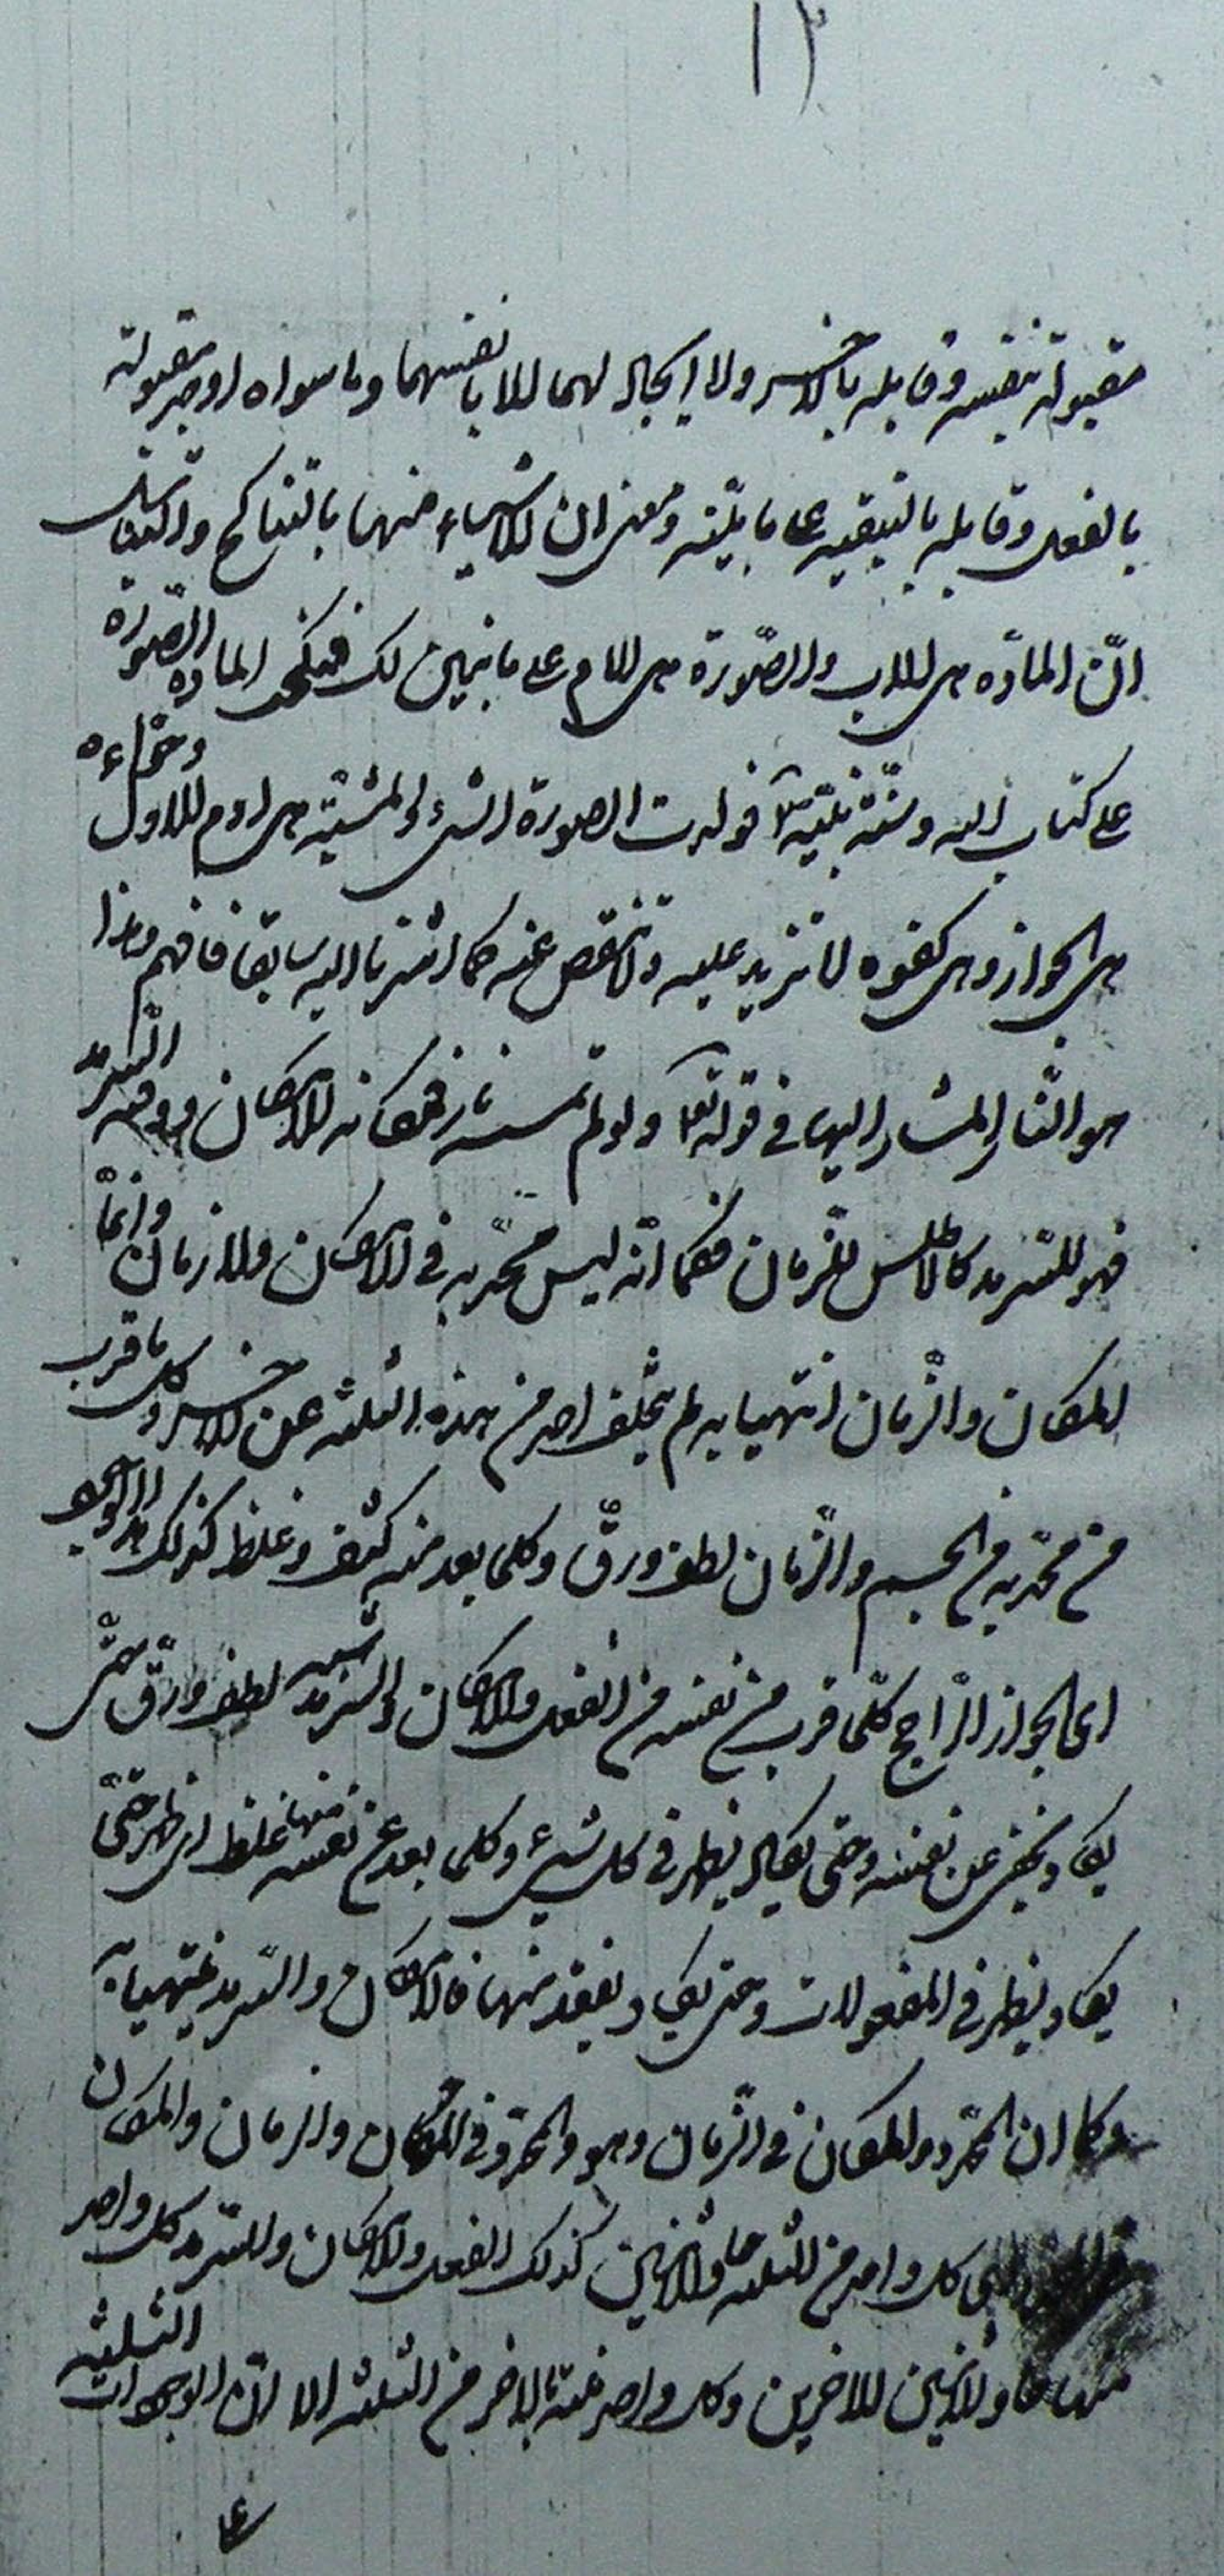 ١٣
مقبولة بنفسه وقابله بالاخر ولا ايجاد لهما الا بانفسهما وما سواه اوجد مقبوله
بالفعل وقابله بالتبعية على ما بيّنته ومعنى ان الاشياء منهما بالتناكح والتناسل
انّ المادّه هى الاب والصّورة هى الام على ما نبيّن لك فنكح المادّه الصّورة
على كتاب الله وسنّة نبيّه فولدت الصورة الشىء والمشيّة هى ادم الاول وحوّاءه
هى الجواز وهى كفوه لا تزيد عليه ولا تنقص عنه كما اشرنا اليه سابقا فافهم وهذا
هو النّار المشار اليها فى قوله تعا ولو لم تمسسه نار فمكانه الامكان ووقته السّرمد
فهو للسّرمد كالاطلس للزّمان فكما انّه ليس محدّبه فى المكان ولا زمان وانّما
المكان والزّمان انتهيا به لم يتخلف احد من هذه الثلثه عن الاخر وكل ما قرب
من محدّبه من الجسم والزّمان لطف ورقّ وكلما بعد منه كثف وغلظ كذلك هذا الوجود
اى الجواز الرّاجح كلّما قرب من نفسه من الفعل والامكان والسّرمد لطف ورقّ حتّى
يكاد يخفى عن نفسه وحتى يكاد يظهر فى كل شىء وكلما بعد عن نفسه منها غلظ اى ظهر حتّى
يكاد يظهر فى المفعولات وحتى يكاد يفقد منها فالامكان والسّرمد ينتهيا به
وكما ان المحدّد والمكان فى الزّمان وهو والمحدّد فى المكان والزمان والمكان
كل واحد من الثلثه حاو للاثنين كذلك الفعل والامكان والسّرمد كل واحد
منها حاو للاثنين الاخرين وكل واحد منته بالاخر من الثلثه الا انّ الوجودات الثلثه
على